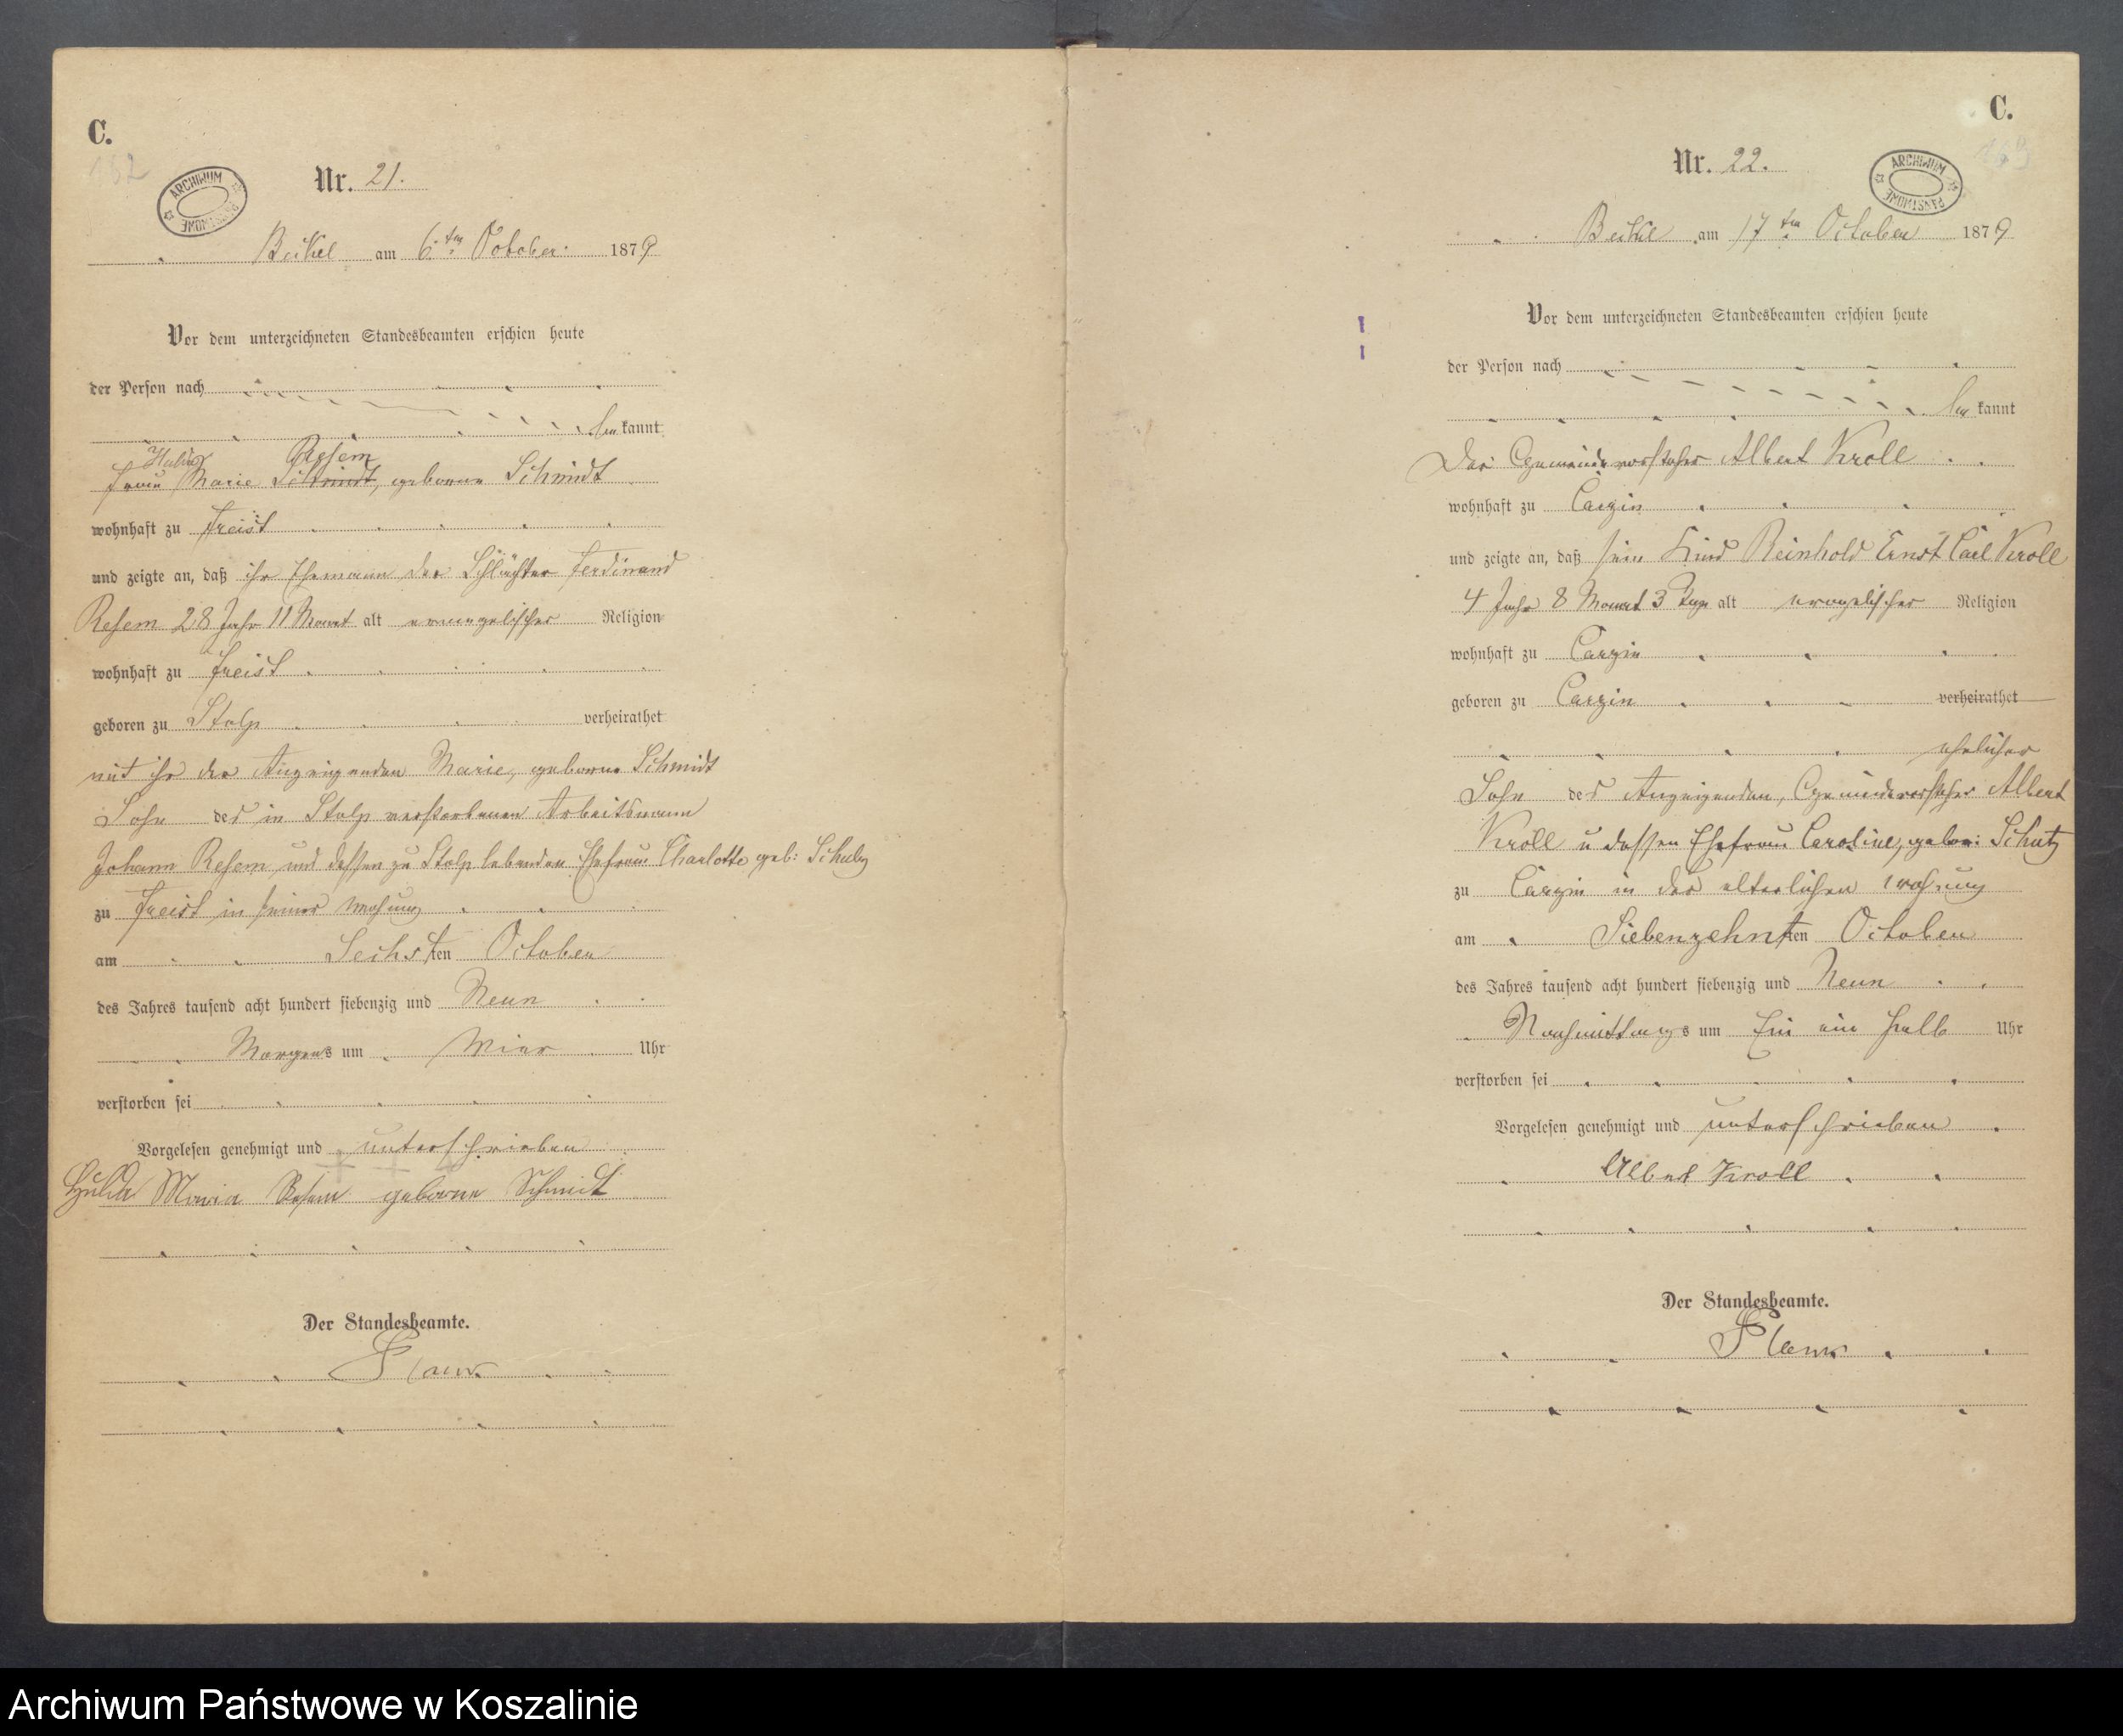 C.
182
ARCHIWUM PAŃSTWOWE
Nr. 21.
Beitel am 6ten October 1879
Vor dem unterzeichneten Standesbeamten erschien heute
der Person nach
be kannt
Hulda Resem
Frau Marie Schmidt, geborne Schmidt
wohnhaft zu Freist
und zeigte an, daß ihr Ehemann der Schlächter Ferdinand
Resem 28 Jahr 11 Monat alt evangelischer Religion
wohnhaft zu Freist
geboren zu Stolp verheirathet
mit ihr der Anzeigenden Marie, geborne Schmidt
Sohn des in Stolp verstorbenen Arbeitsmann
Johann Resem und dessen zu Stolp lebenden Ehefrau Charlotte geb: Schulz
zu Freist in seiner Wohnung
am Sechsten October
des Jahres tausend acht hundert siebenzig und Neun
Morgens um Vier Uhr
verstorben sei
Vorgelesen genehmigt und unterschrieben
Hulda Maria Resem geborne Schmidt
Der Standesbeamte.
C.
ARCHIWUM PAŃSTWOWE
Nr. 22.
Beitel am 17ten October 1879
Vor dem unterzeichneten Standesbeamten erschien heute
der Person nach
be kannt
Der Gemeindevorsteher Albert Kroll
wohnhaft zu Carzin
und zeigte an, daß sein Kind Reinhold Ernst Carl Kroll
4 Jahr 8 Monat 3 Tage alt evangelischer Religion
wohnhaft zu Carzin
geboren zu Carzin verheirathet
ehelicher
Sohn des Anzeigenden, Gemeindevorsteher Albert
Kroll u dessen Ehefrau Caroline, gebor: Schutz
zu Carzin in der elterlichen Wohnung
am Siebenzehnten October
des Jahres tausend acht hundert siebenzig und Neun
Nachmittags um Ein ein halb Uhr
verstorben sei
Vorgelesen genehmigt und unterschrieben
Albert Kroll
Der Standesbeamte.
Archiwum Państwowe w Koszalinie